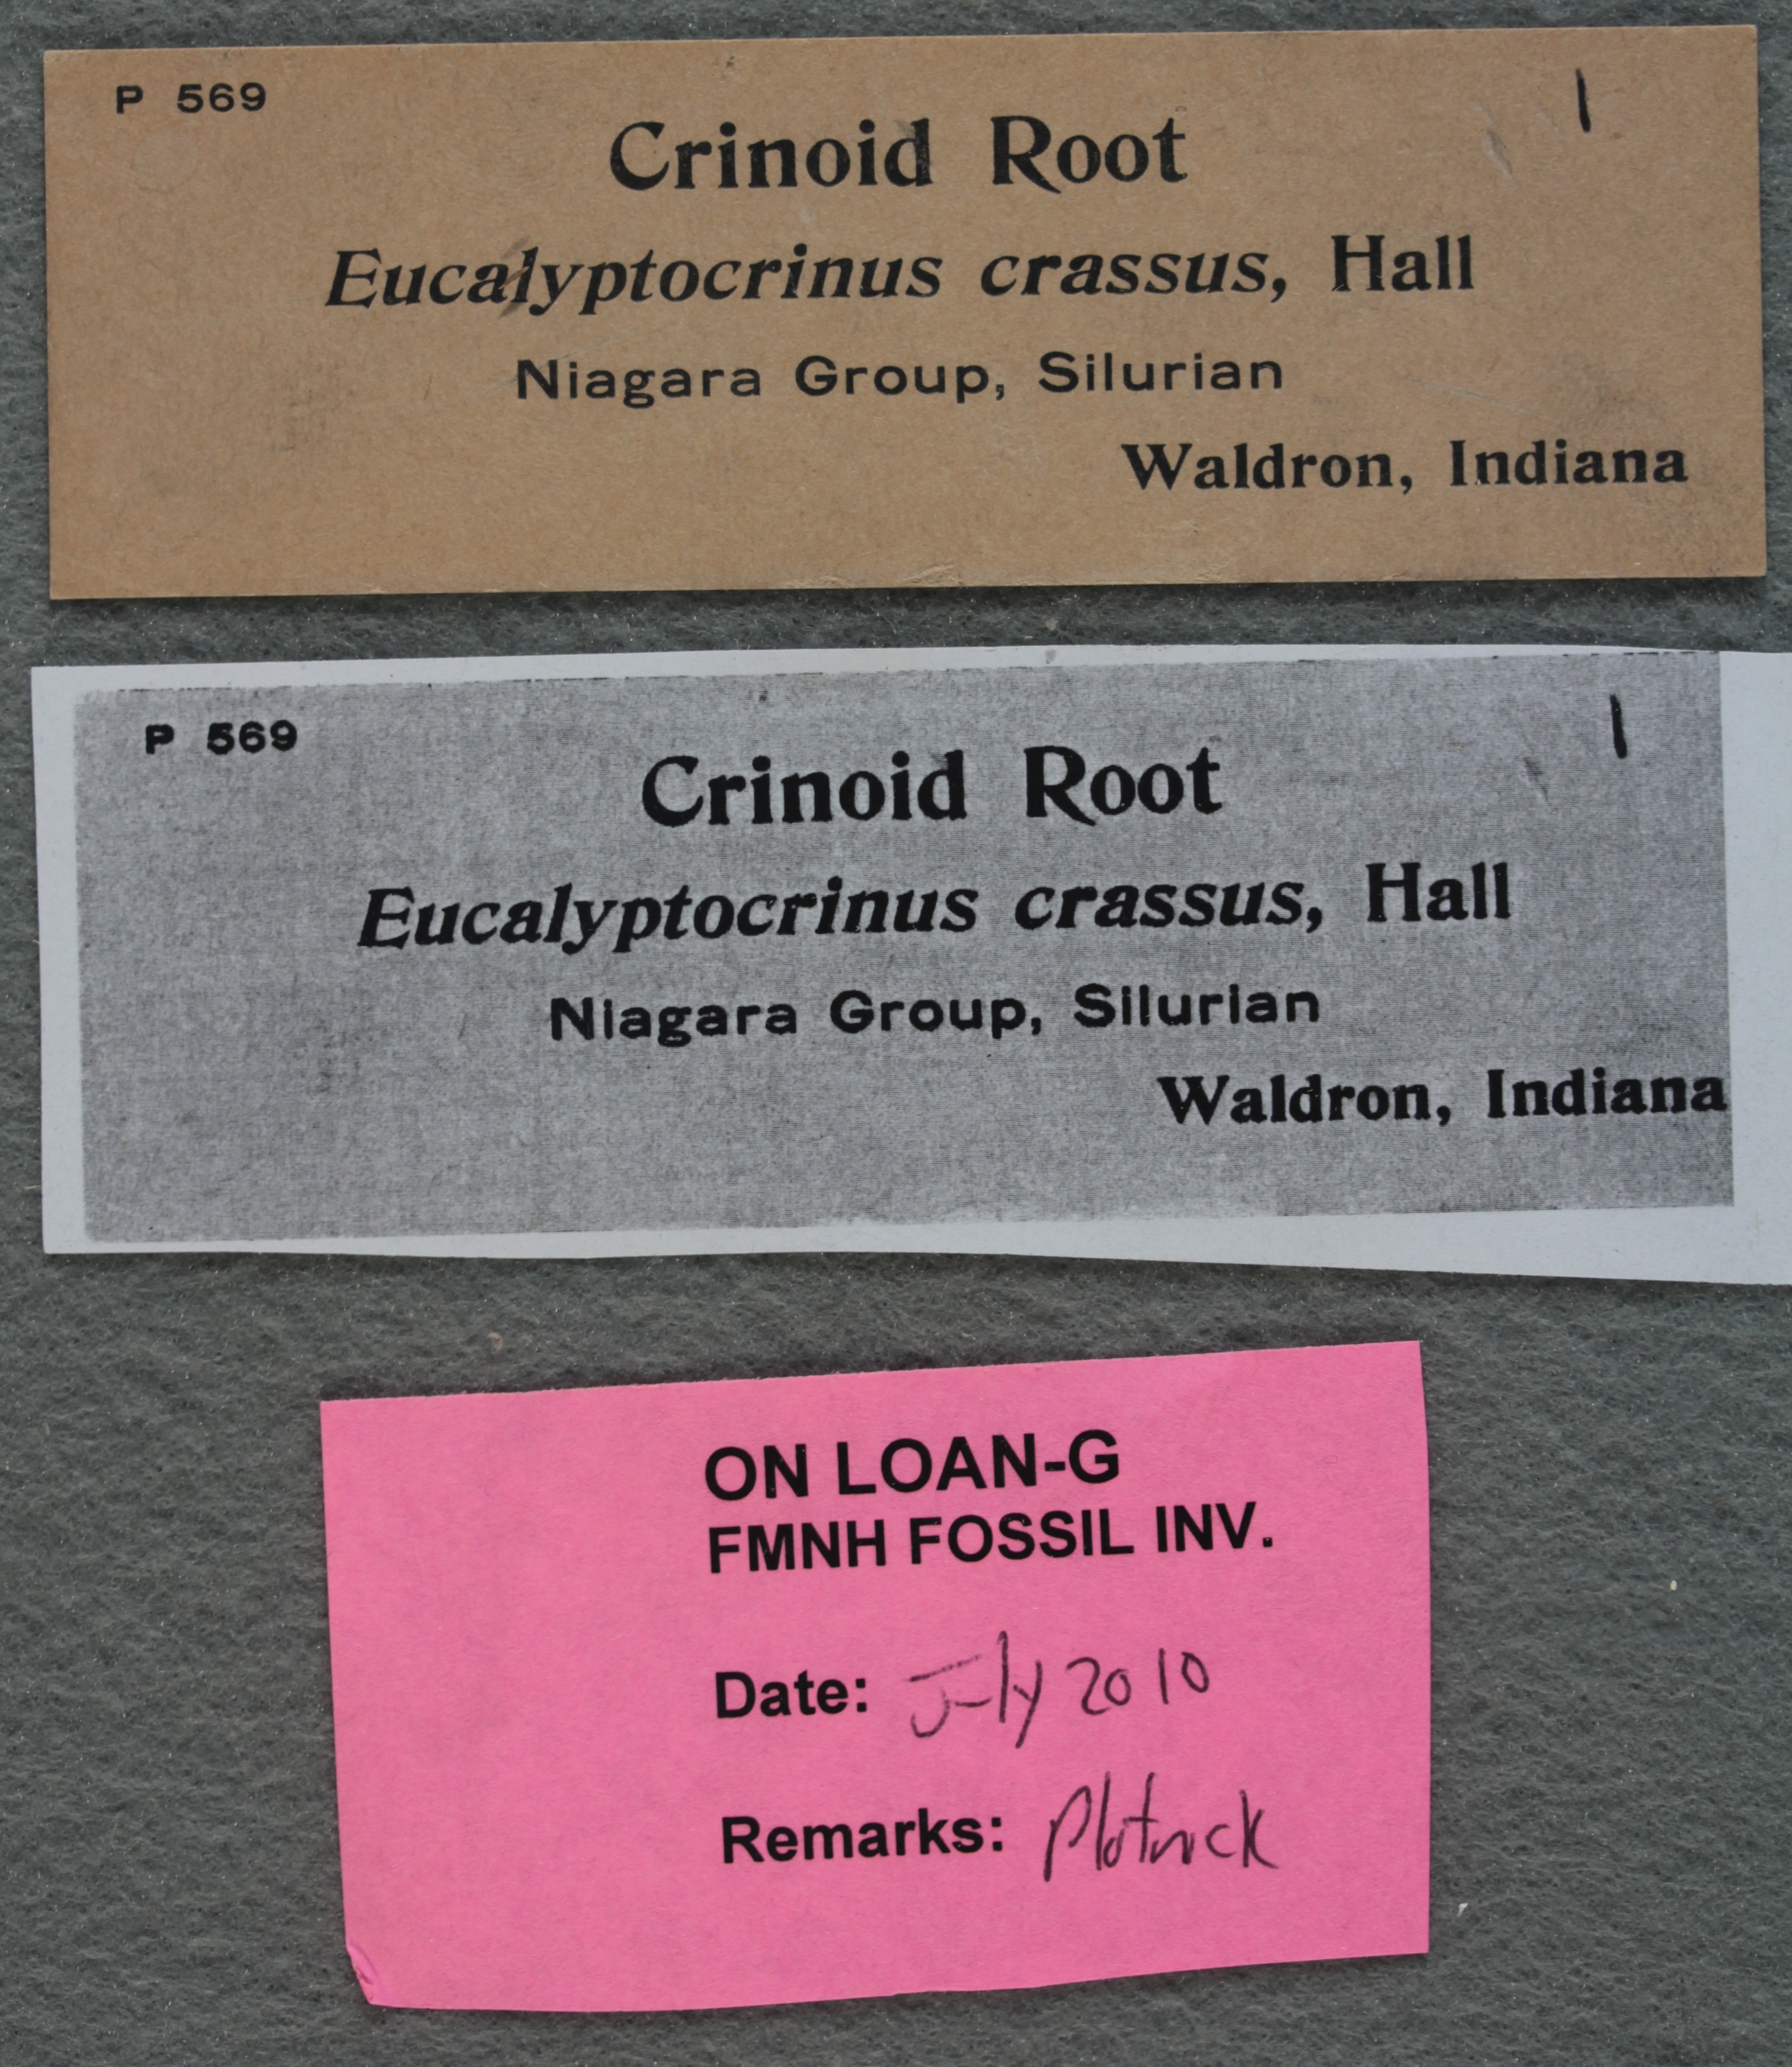 P 569
1
Crinoid Root
Eucalyptocrinus crassus, Hall
Niagara Group, Silurian
Waldron, Indiana
P 569
1
Crinoid Root
Eucalyptocrinus crassus, Hall
Niagara Group, Silurian
Waldron, Indiana
ON LOAN-G
FMNH FOSSIL INV.
Date: July 2010
Remarks: Plotnick